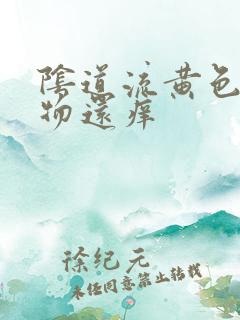 陰道流黄色
物還痒
徐纪元
未经同意禁止转载